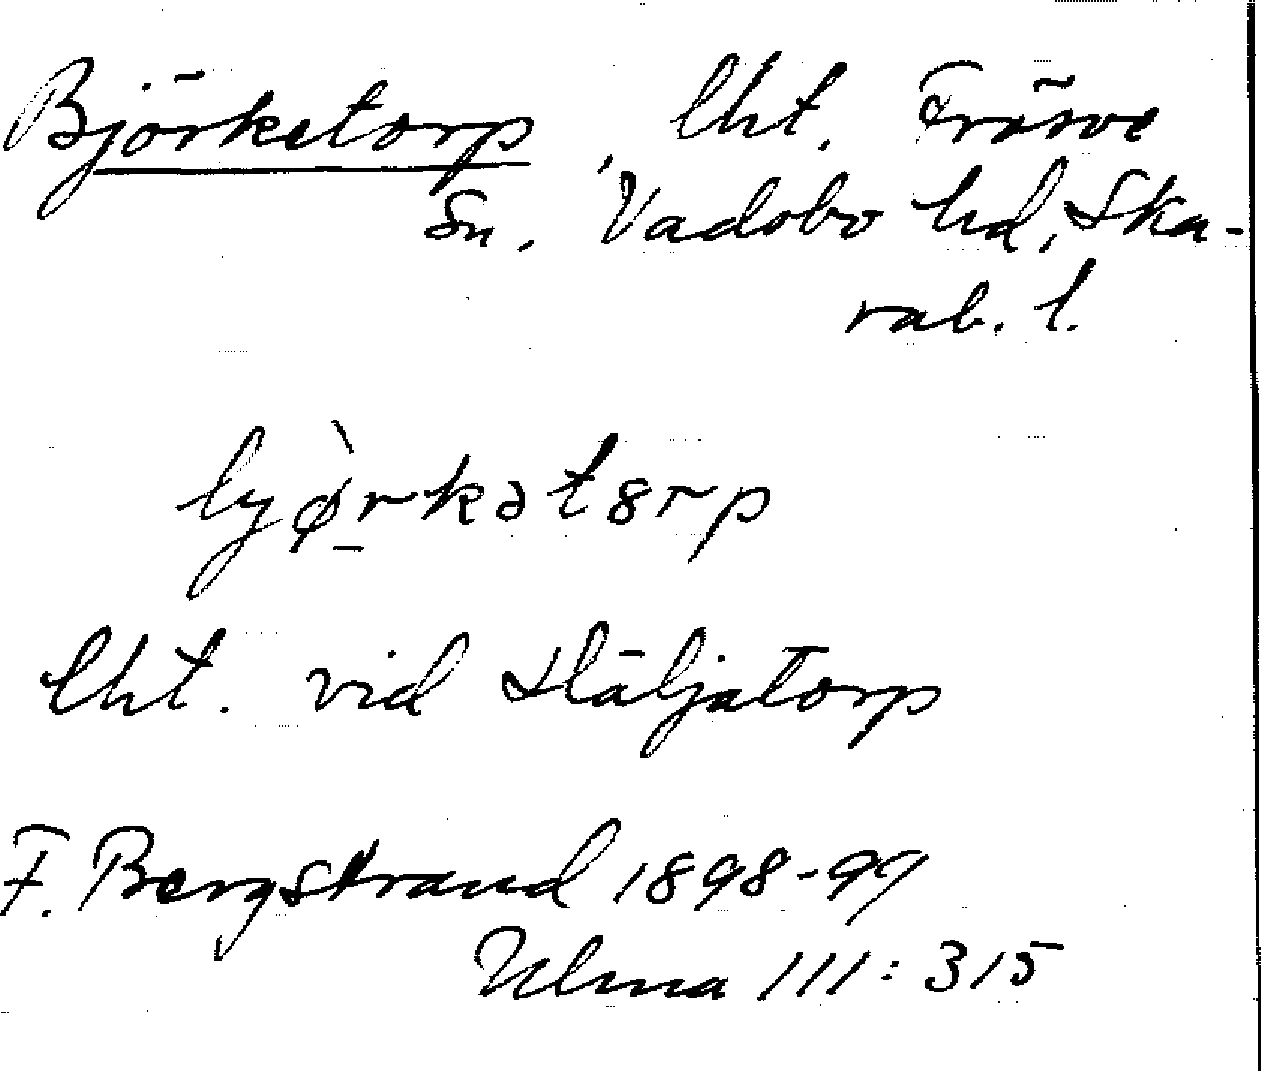 Björketorp, lht. Frösve
Sn. Vadsbo hd, Ska-
rab. l.
bjø̀rkətȣrp
lht. vid Häljatorp
F. Bergstrand 1898-99
Ulma 111:315